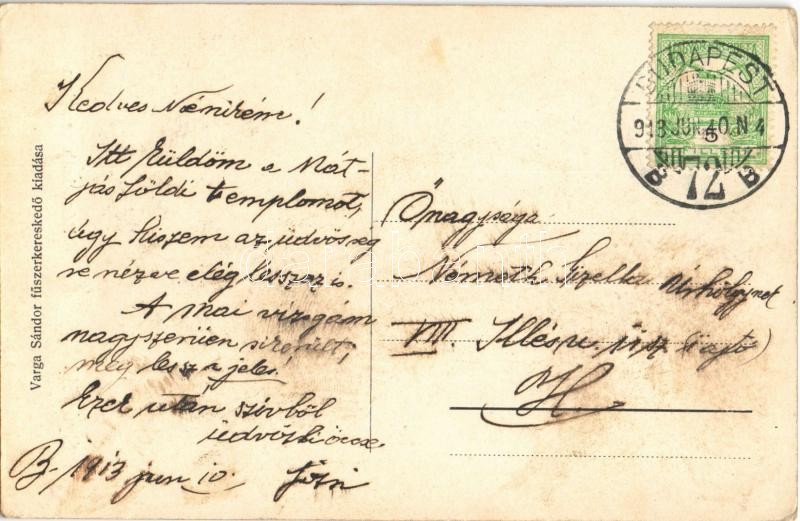 Kedves Nénirém!
Itt küldöm a Mát-
jás földi templomot,
úgy hiszem az üdvösség
re nézve elég lesz ez is.
A mai vizsgám
nagyszerűen sikerült,
még lesz a jeles.
Ezek után szívből
üdvözli
B. 1913 jun 10.
Varga Sándor fűszerkereskedő kiadása
BUDAPEST
913 JUN. 10. N 4
B 72 B
5
Őnagysága
Németh Gizella Úrhölgynek
VIII. Illés u.
H.